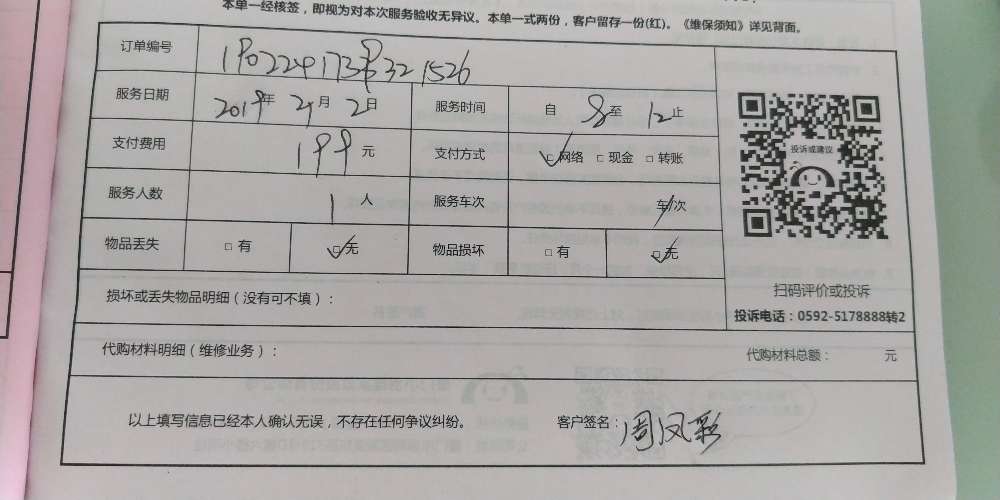 本单一经核签，即视为对本次服务验收无异议。本单一式两份，客户留存一份(红)。《维保须知》详见背面。
订单编号
服务日期 2019年 2月 2日 服务时间 自 8 至 12 止
支付费用 199 元 支付方式 ☑网络 □现金 □转账
服务人数 1 人 服务车次 / 车/次
物品丢失 □有 ☑无 物品损坏 □有 ☑无
投诉或建议
扫码评价或投诉
投诉电话：0592-5178888转2
损坏或丢失物品明细（没有可不填）：
代购材料明细（维修业务）： 代购材料总额： 元
以上填写信息已经本人确认无误，不存在任何争议纠纷。 客户签名：周凤彩